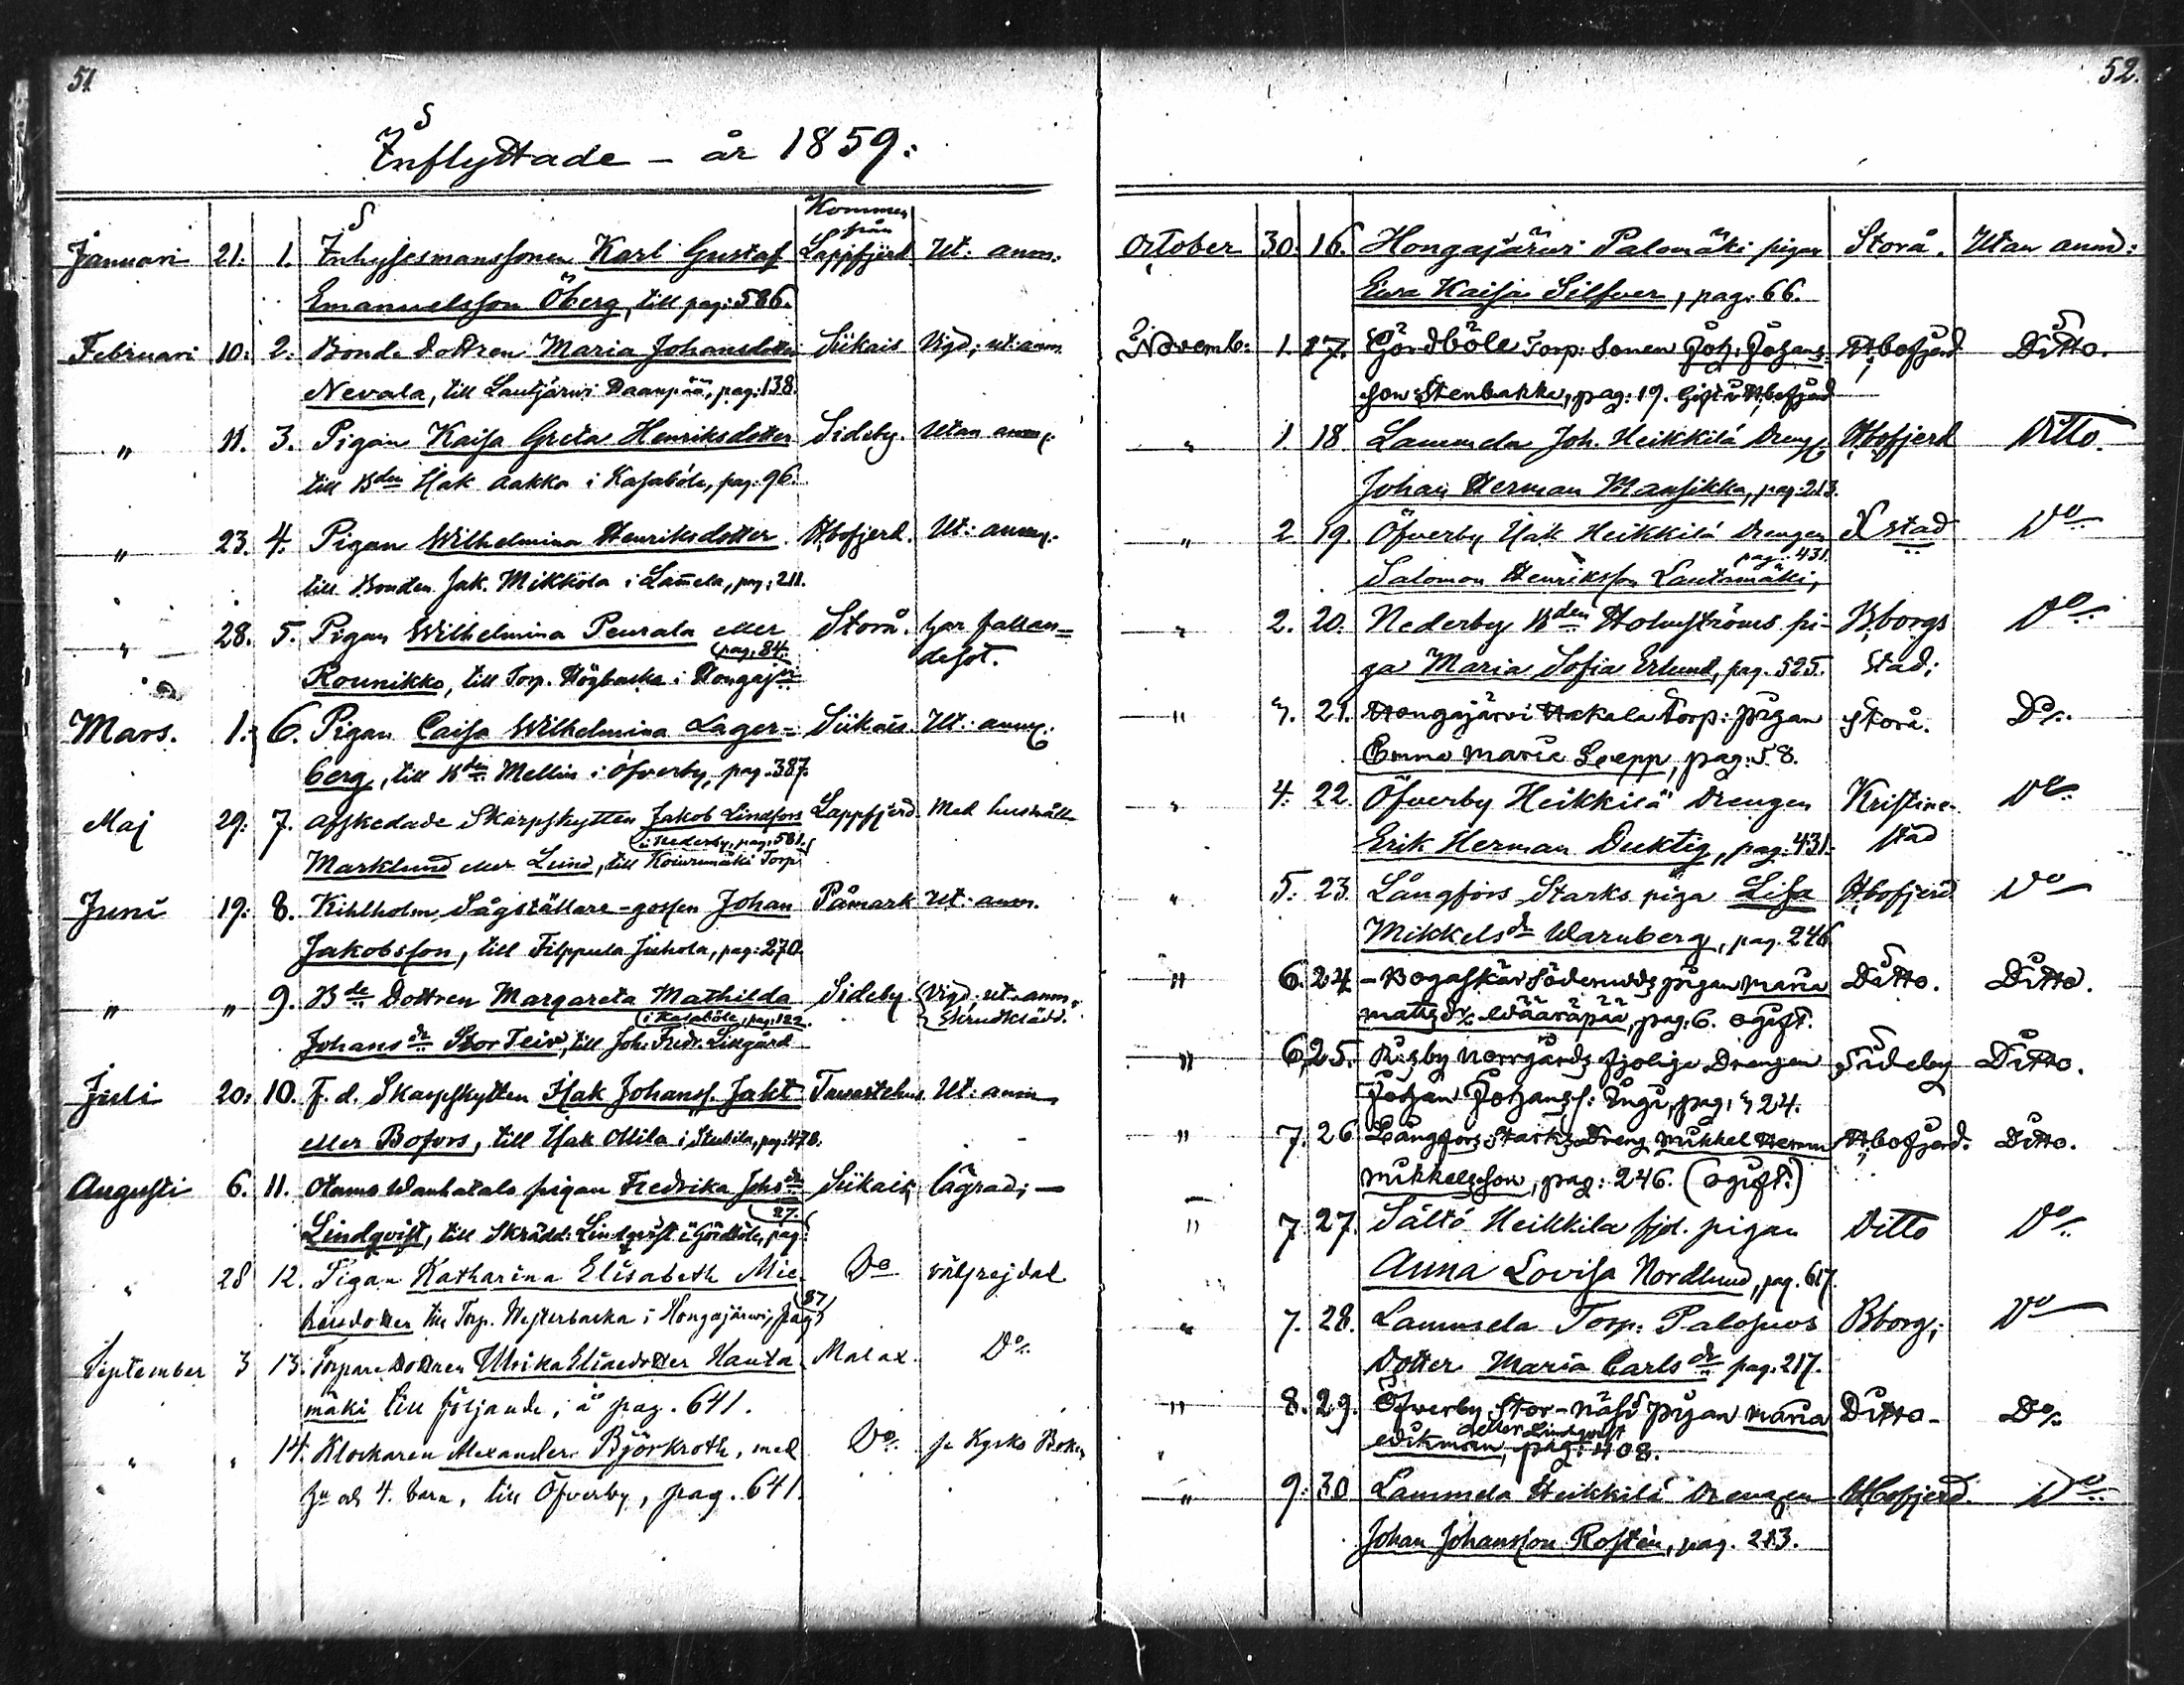 51
Inflyttade - år 1859:
Kommen
från
Januari 21. 1. Inhysesmanssonen Karl Gustaf Lappfjerd Ut: anm:
Emanuelsson Öberg, till pag: 586.
Februari 10: 2: Bonde Dottren Maria Johansdotter Siikais Vigd; ut: anm.
Nevala, till Lautjärvi Daanpää, pag: 138.
" 11. 3. Pigan Kaisa Greta Henriksdotter Sideby. Utan anm:
till Bden Isak Aakka i Kasaböle, pag: 96.
" 23. 4. Pigan Wilhelmina Henriksdotter. Hbofjerd. Ut: anm:
till Bonden Jak. Mikkola i Lam̄ela, pag: 211.
" 28. 5. Pigan Wilhelmina Peurala eller Storå. har fallan=
pag: 84. desot.
Rounikko, till Torp. Högbacka i Hongaj
Mars. 1. 6. Pigan Caisa Wilhelmina Lager= Siikais. Ut: anm:
berg, till Bden Mellin i Öfverby, pag. 387.
Maj 29: 7. Afskedade Skarpskytten Jakob Lindfors Lappfjerd. Med
i Nederby, pag: 581.
Marklund eller Lund, till Torp
Juni 19: 8. Kihlholm Sågställare-gossen Johan Påmark Ut: anm.
Jakobsson, till Filppula Juhola, pag: 270.
" " 9. Bde Dottren Margareta Mathilda Sideby. Vigd; ut. anm.
i Kasaböle, pag: 122.
Johansdr Stor Teir, till Joh. Fredr. Lillgård
Juli 20: 10. F. d. Skarpskytten Isak Johanss. Jakt Tavastehus. Ut: anm.
eller Bofors, till Isak Ollila i pag: 478.
Augusti 6. 11. Otamo Wanhatalo pigan Fredrika Johsdr Siikais, lägrad; —
27.
Lindqvist, till Skrädd: Lindqvist i Gördböle, pag:
" 28 12. Pigan Katharina Elisabeth Mic- Do
87
till Torp. Westerbacka i Hongajärvi, pag
September 3 13. Torpare Dottren Ulrika Eliaedotter Hauta Malax. Do/.
mäki till följande, å pag. 641.
" " 14. Klockaren Alexander Björkroth, med Do/. se Kyrko Boken
hu och 4. barn, till Öfverby, pag. 641.
52.
October 30. 16. Hongajärvi Palomäki pigan Storå. Utan anm:
Ewa Kaisa Silfver, pag: 66.
Novemb: 1. 17. Gördböle Torp: Sonen Joh: Johans- Hbofjerd Ditto.
son Stenbakka, pag: 19.
" 1. 18 Lammela Joh. Heikkilä Dreng Hbofjerd Ditto.
Johan Herman Mansikka, pag: 213.
" 2 19. Öfverby Isak Heikkilä Drengen stad Do
pag: 431.
Salomon Henriksson Lautamäki,
" 2. 20. Nederby Bden Holmströms pi- Bborgs Do
ga Maria Sofia Erlund, pag. 525. Stad;
" 3. 21. Hongajärvi Hakala Torp: pigan Storå. Do/.
Emma Maria Sepp, pag: 58.
" 4. 22. Öfverby Heikkilä Drengen Kristine- Do
Erik Herman Duktig, pag: 431. stad
" 5. 23. Långfors Starks piga Lisa Hbofjerd Do
Mikkelsdr Warnberg, pag. 246
" 6. 24. - Bogaskär Söderudds pigan Maria Ditto. Ditto.
Matsdr Wääräpää, pag: 6. ogift.
" 6. 25. Risby Norrgårds fjolige Drengen Sideby Ditto.
Johan Johanss: pag: 324.
" 7. 26. Långfors Starks Dreng Mikkel Herman Hbofjerd. Ditto.
Mikkelsson, pag: 246. (ogift.)
" 7. 27. Sältö Heikkilä fjol. pigan Ditto Do/.
Anna Lovisa Nordlund, pag. 617.
" 7. 28. Lammela Torp: Palohuos Bborg; Do
Dotter Maria Carlsdr pag: 217.
" 8. 29. Öfverby Stor-Näsi pigan Maria Ditto - Do/.
eller Lindqvist
Wikman, pag: 408.
" 9. 30 Lammela Heikkilä Drengen Hbofjerd. Do
Johan Johansson Rostén, pag. 213.